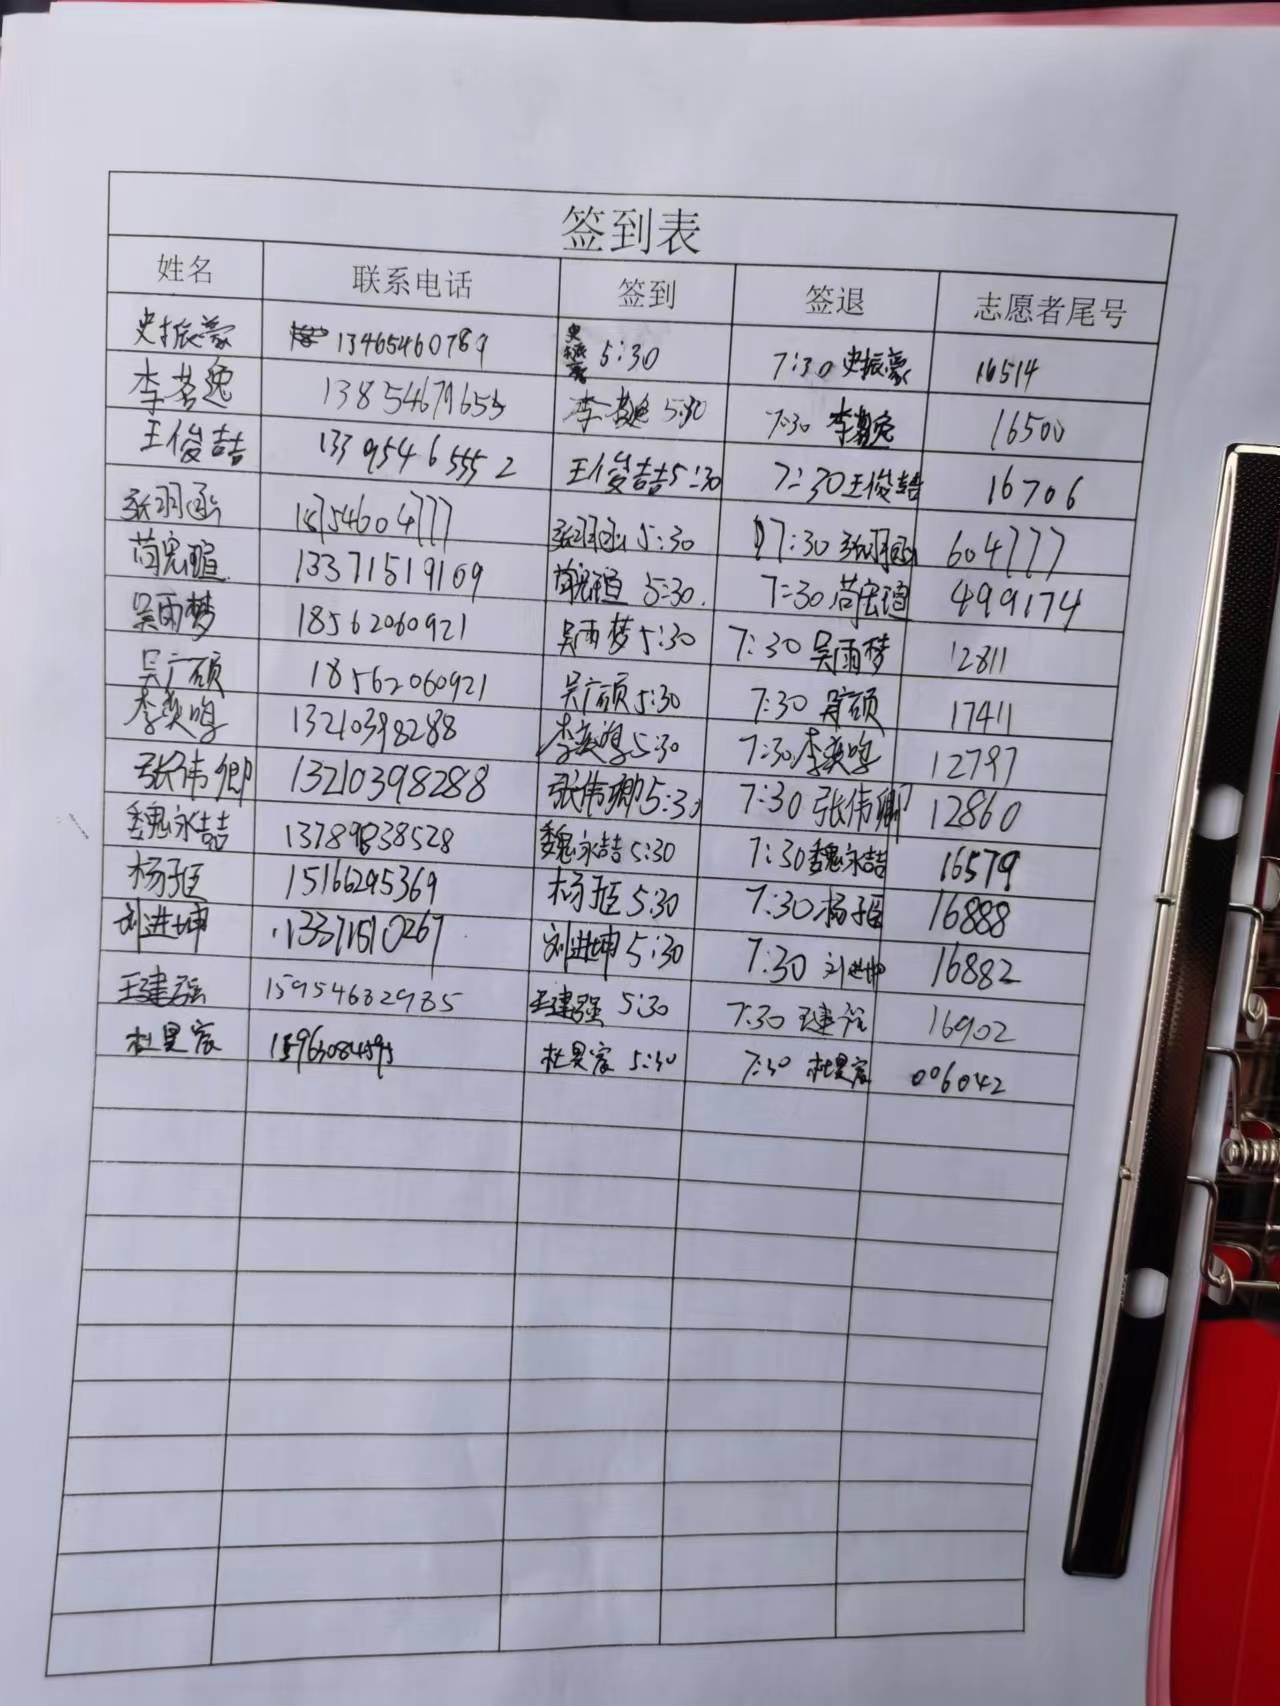 签到表
姓名 联系电话 签到 签退 志愿者尾号
史振豪 13465460789 史振豪 5:30 7:30 史振豪 16514
李茗逸 13854679655 李茗逸 5:30 7:30 16500
王俊喆 13395465552 王俊喆 5:30 7:30 王俊喆 16706
张羽函 张羽函 5:30 7:30 张羽函 604777
苘宏瑄 13371519109 苘宏瑄 5:30. 7:30 苘宏瑄 499174
吴雨梦 18562060921 吴雨梦 5:30 7:30 吴雨梦 12811
吴广硕 18562060921 吴广硕 5:30 7:30 吴广硕 17411
李奕鸣 13210398288 李奕鸣 5:30 7:30 李奕鸣 12797
张伟卿 13210398288 张伟卿 5:30 7:30 张伟卿 12860
魏永喆 13789838528 魏永喆 5:30 7:30 魏永喆 16579
杨珽 15166295369 杨珽 5:30 7:30 16888
刘进坤 13371510267 刘进坤 5:30 7:30 刘进坤 16882
王建强 15954682985 王建强 5:30 7:30 王建强 16902
杜昊宸 杜昊宸 5:30 7:30 杜昊宸 006042